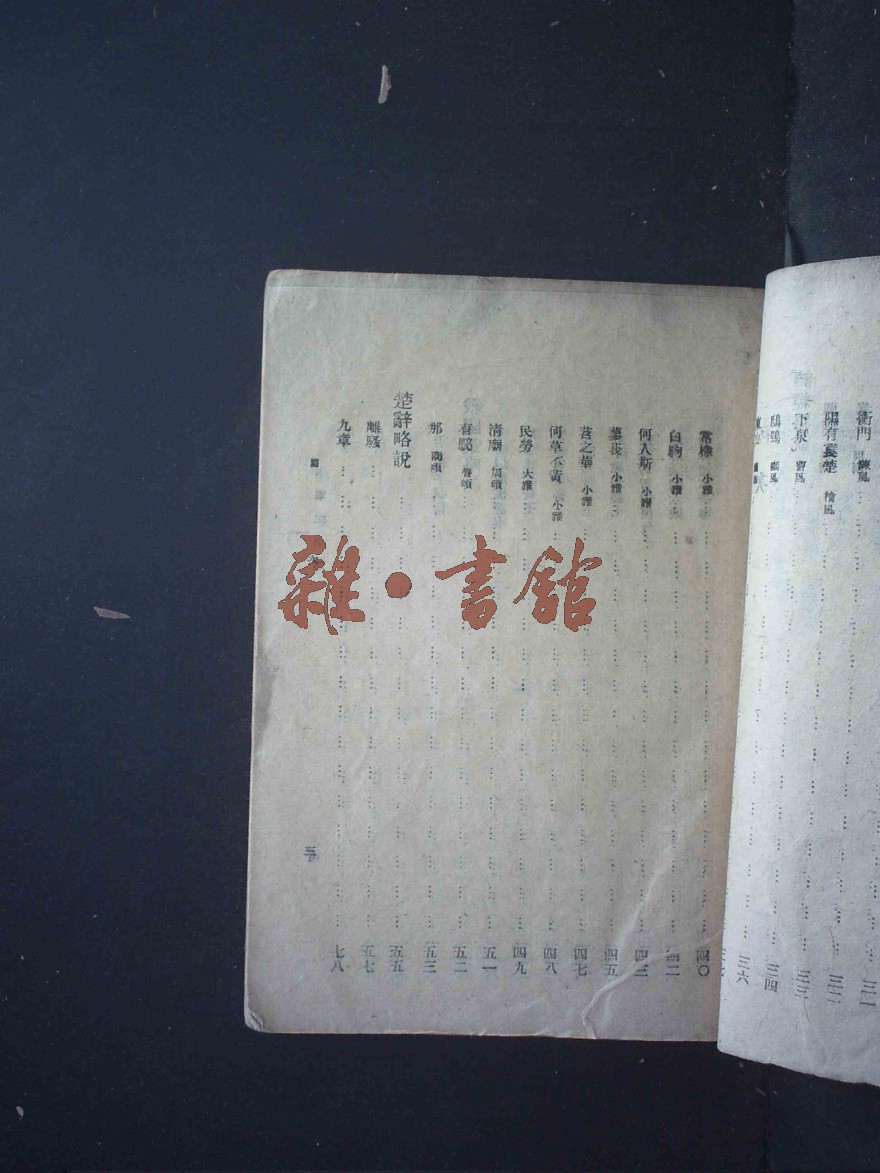 衡門 陳風 三一
隰有萇楚 檜風 三二
下泉 曹風 三三
鴟鴞 豳風 三四
三六
常棣 小雅 四〇
白駒 小雅 四二
何人斯 小雅 四三
蓼莪 小雅 四五
苕之華 小雅 四七
何草不黃 小雅 四八
民勞 大雅 四九
清廟 周頌 五一
有駜 魯頌 五二
那 商頌 五三
楚辭略說 五五
離騷 五七
九章 七八
三
雜·書館